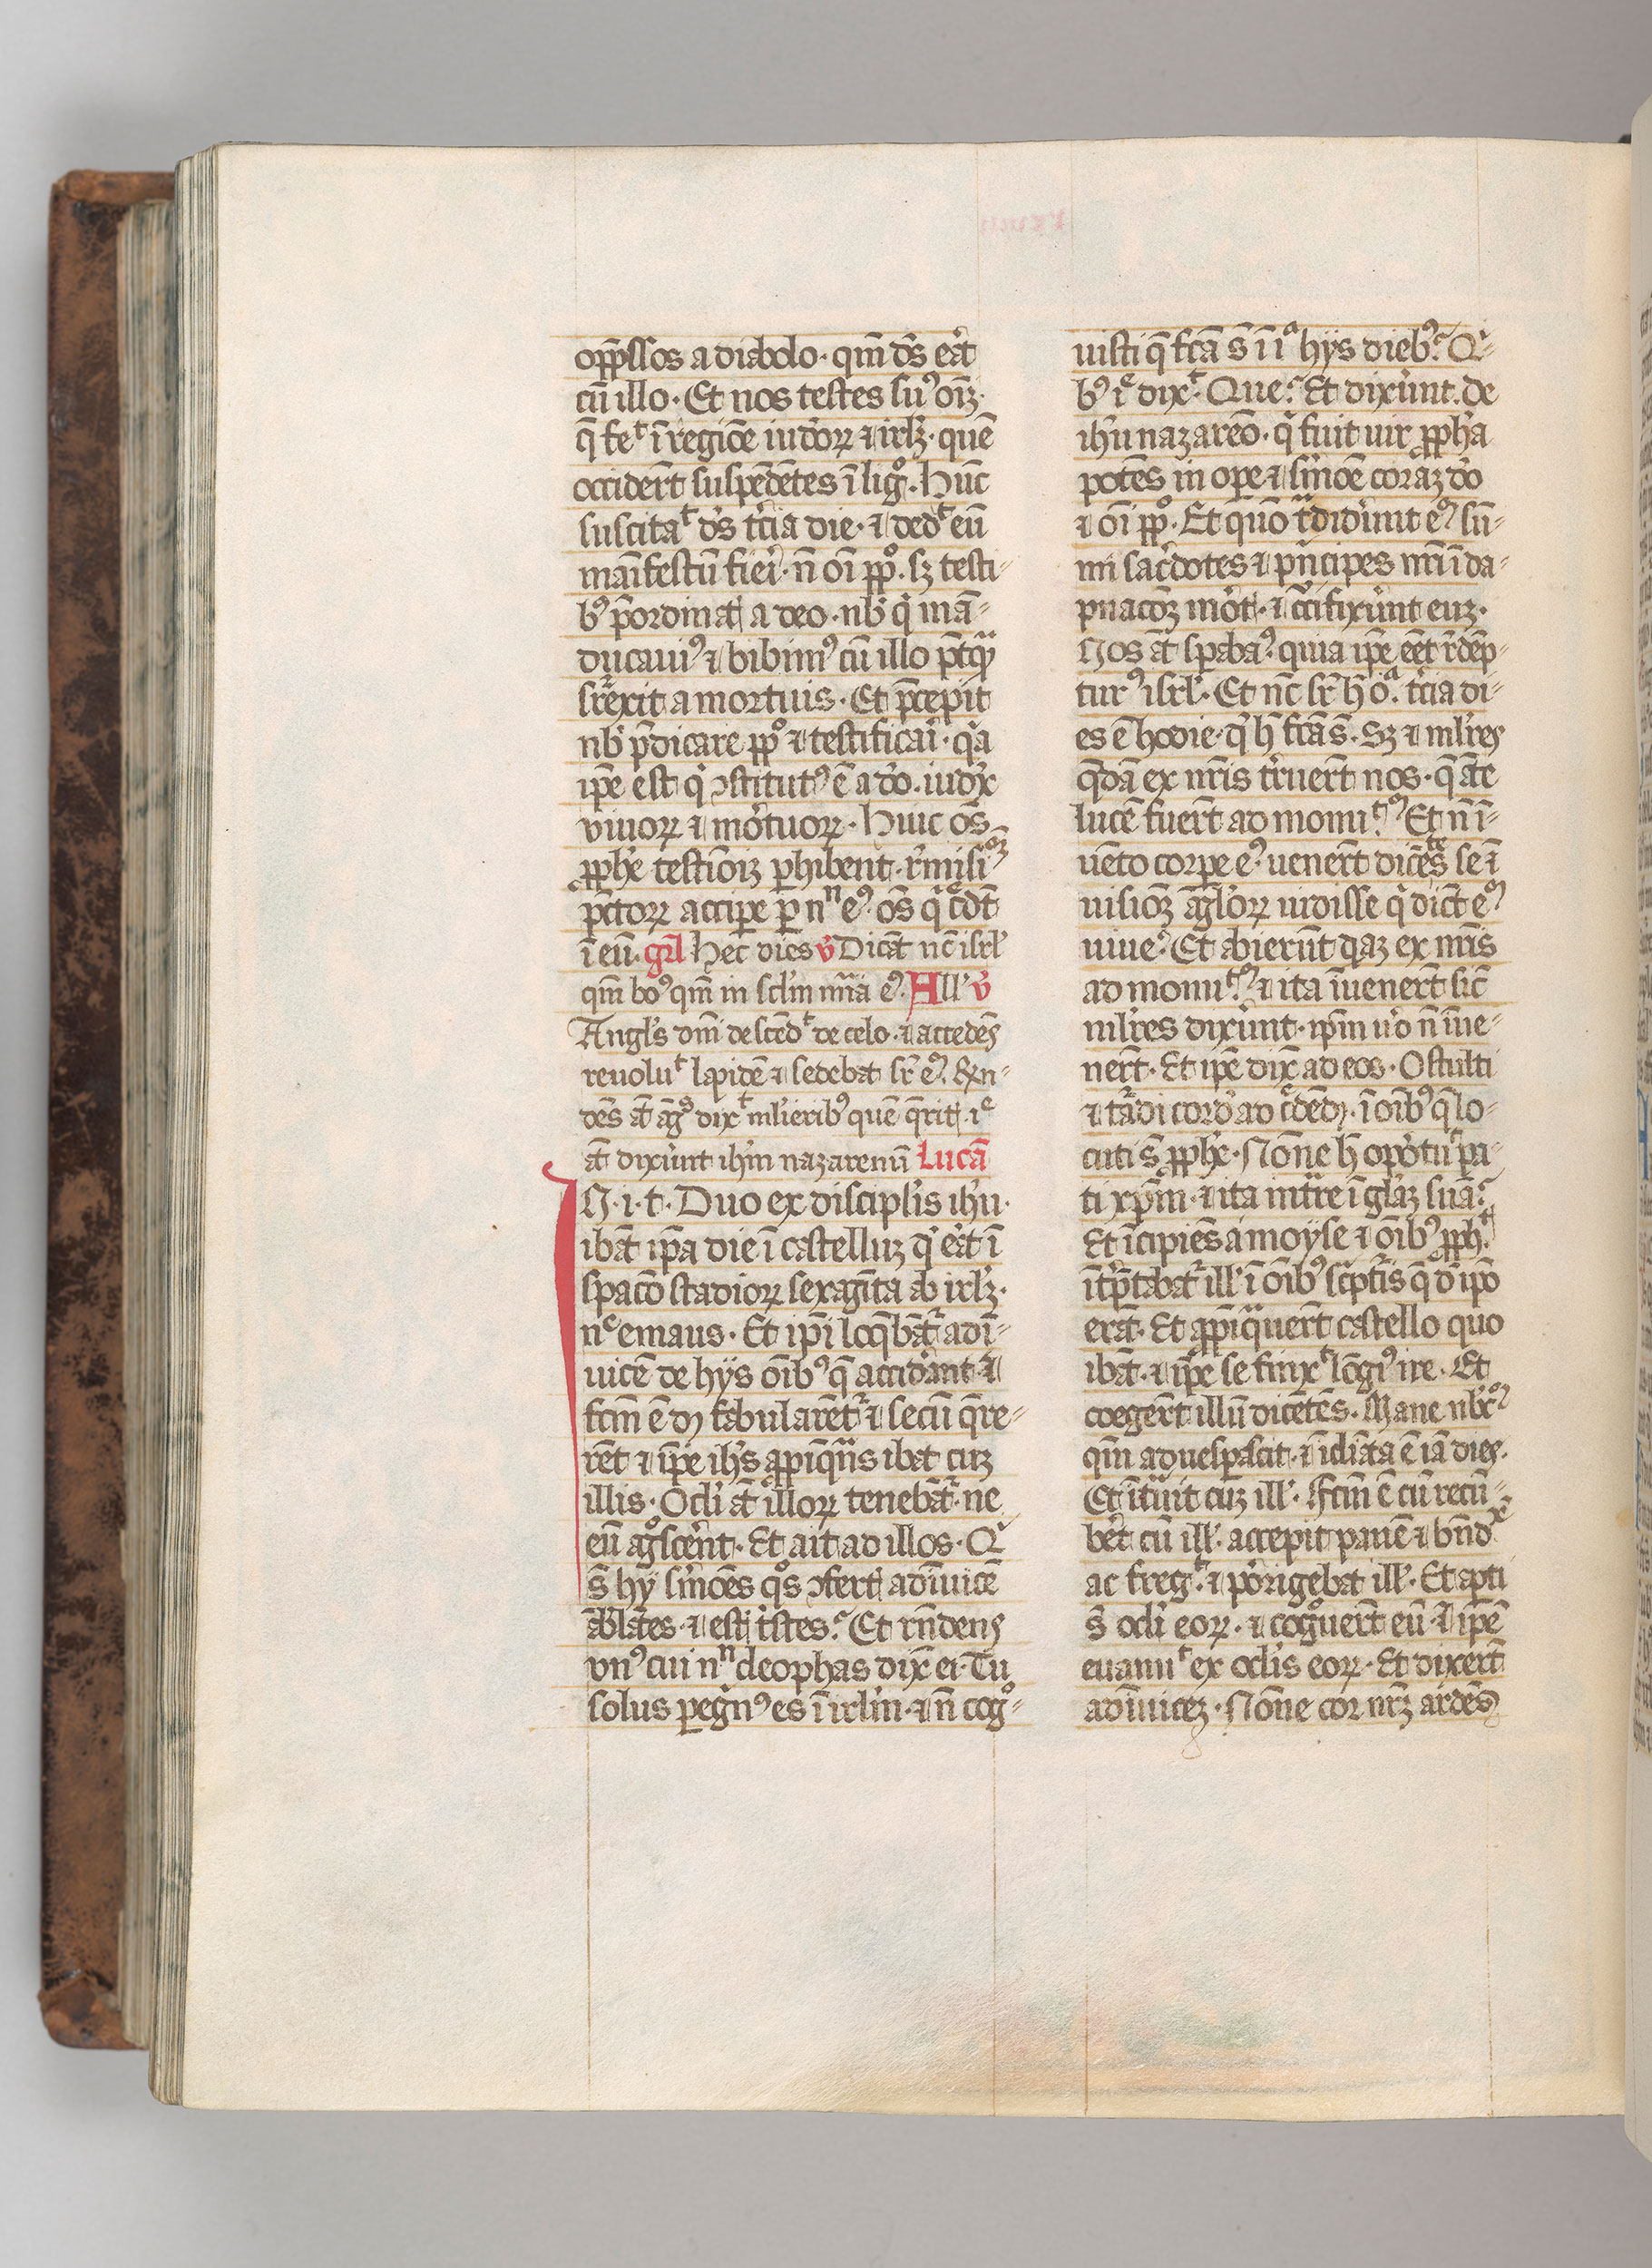 opp̄ssos a diabolo · qm̄ ds̄ eāt
cū illo · Et nos testes suꝰ oīꝫ ·
q̄ feᵗ ī regiōe iudoꝝ ⁊ irlꝫ · quē
occidert̄ suspēdētes ī ligᵒ. Hūc
suscitaᵗ ds̄ tc̄ia die · ⁊ dedᵗ eū
maīfestū fieri · n̄ oī pp̄ᵒ · sꝫ testi-
bꝰ p̄ordinat̄ a deo · nb̄ qⁱ mā-
ducauiꝰ ⁊ bibimꝰ cū illo p̄tqᵃ
sr̄rexit a mortuis · Et p̄cepit
nb̄ p̄dicare pp̄ᵒ ⁊ testificari · qᵃ
ip̄e est qⁱ ꝯstitutꝰ ē a dō · iudex
viuoꝝ ⁊ mortuoꝝ · Huic oēs
pph̄e testīoīꝫ ꝑhibent · r̄missiōꝫ
pc̄toꝝ accipe ꝑ nⁿ eꝰ · oēs qⁱ cͤdt̄
ī eū · grl̄ Hec dies v̄ Dicāt nc̄ isrl̄
qm̄ boꝰ qm̄ in scl̄m mīa eꝰ · All' v̄
Angl's dnī descēdᵗ de celo · ⁊ accedēs
reuoluᵗ lapidē ⁊ sedebat sr̄ eꝰ · Rn̄-
dēs āt āgᵒ dixᵗ ml'ieribꝰ quē q̄rit̄ · iᵉ
āt dixūnt ihm̄ nazarenū Lucā
N · i · t · Duo ex discipl'is ihū ·
ibāt ipa die ī castelluꝫ qᵈ eāt ī
spacō stadioꝝ sexagīta ab irlꝫ ·
nᵉ emaus · Et ip̄i loq̄bāt̄ᵣ adī-
uicē de hÿs oībꝰ q̄ accidānt · ⁊
fcm̄ ē dꝫ fabularēt̄ᵣ ⁊ secū q̄re-
rēt ⁊ ip̄e ihs̄ app̄īqᵃns ibat cuꝫ
illis · Ocl'i āt illoꝝ tenebāt̄ᵣ · ne
eū agᵒscerēt · Et ait ad illos · Qⁱ
s̄ hÿ sm̄oēs qᵒs ꝯfert̄ adīuicē
ābl'ātes · ⁊ est̄ tⁱstes ? Et rn̄dens
vnꝰ cui nⁿ cleophas dix̄ ei · Tu
solus ꝑegⁱnꝰ es ī irl'm · ⁊ n̄ cogᵒ-
uisti q̄ fcā s̄ ī iᵃ hÿs diebꝰ ? Qⁱ-
bꝰ iᵉ dixᵗ · Que ? Et dixūnt · de
ihū nazareō · qⁱ fuit uir pph̄a
potēs in oꝑe ⁊ sm̄oē coraꝫ dō
⁊ oī pp̄ᵒ · Et quō tᵃdidūnt eꝰ sū-
mi sac̄dotes ⁊ pⁱncipes nr̄i ī da-
pnacōꝫ mort̄ · ⁊ cᵘcifixūnt euꝫ ·
Nos āt spabaꝰ · quia ip̄e eēt rēdēp-
turꝰ isrl' · Et nc̄ sr̄ h̄ oᵃ · tc̄ia di-
es ē hodie · qᵈ h̄ fcā s̄ · Sꝫ ⁊ ml'res
q̄dā ex nr̄is tr̄uert̄ nos · q̄ āte
lucē fuert̄ ad monuᵗꝰ Et n̄ ī-
uēto corꝑe eꝰ · uenert̄ dicētes se ⁊
uisiōꝫ āgl'oꝝ uidisse qⁱ dicūt eꝰ
uiueꝰ · Et abierūt qⁱdaꝫ ex nr̄is
ad monuᵗꝰ · ⁊ ita īuenert̄ sic̄
ml'res dixūnt · ipm̄ u̇o n̄ īue-
nert̄ · Et ip̄e dix̄ ad eos · O stulti
⁊ tᵃdi cord̄ ad cͤdēdꝫ · ī oībꝰ q̄ lo-
cuti s̄ pph̄e · Nōne h̄ oportuⁱt pa-
ti xp̄m · ⁊ ita ītᵃre ī gl'aꝫ suā ?
Et īcipiēs a moÿse ⁊ oībꝰ pph̄ⁱˢ
īt̄p̄tabat̄ᵣ ill' ī oībꝰ scⁱptᵘis q̄ d̄ ipō
erāt · Et app̄īquert̄ castello quo
ibāt · ⁊ ip̄e se finxᵗ lōgiꝰ ire · Et
coegert̄ illū dicētes · Mane nb̄cꝰ
qm̄ aduesꝑascit · ⁊ īclīata ē iā dies ·
Et ītᵃuit cuꝫ ill' · ⁊ fcm̄ ē cū recū-
bēt cū ill' · accepit panē ⁊ bn̄dˣ
ac fregᵗ · ⁊ porⁱgebat ill' · Et aꝑti
s̄ ocl'i eoꝝ · ⁊ cogᵒuert̄ eū · ⁊ ip̄e
euanuᵗ ex ocl'is eoꝝ · Et dixert̄
adīuiceꝫ · Nōne cor nr̄ꝫ ardēs